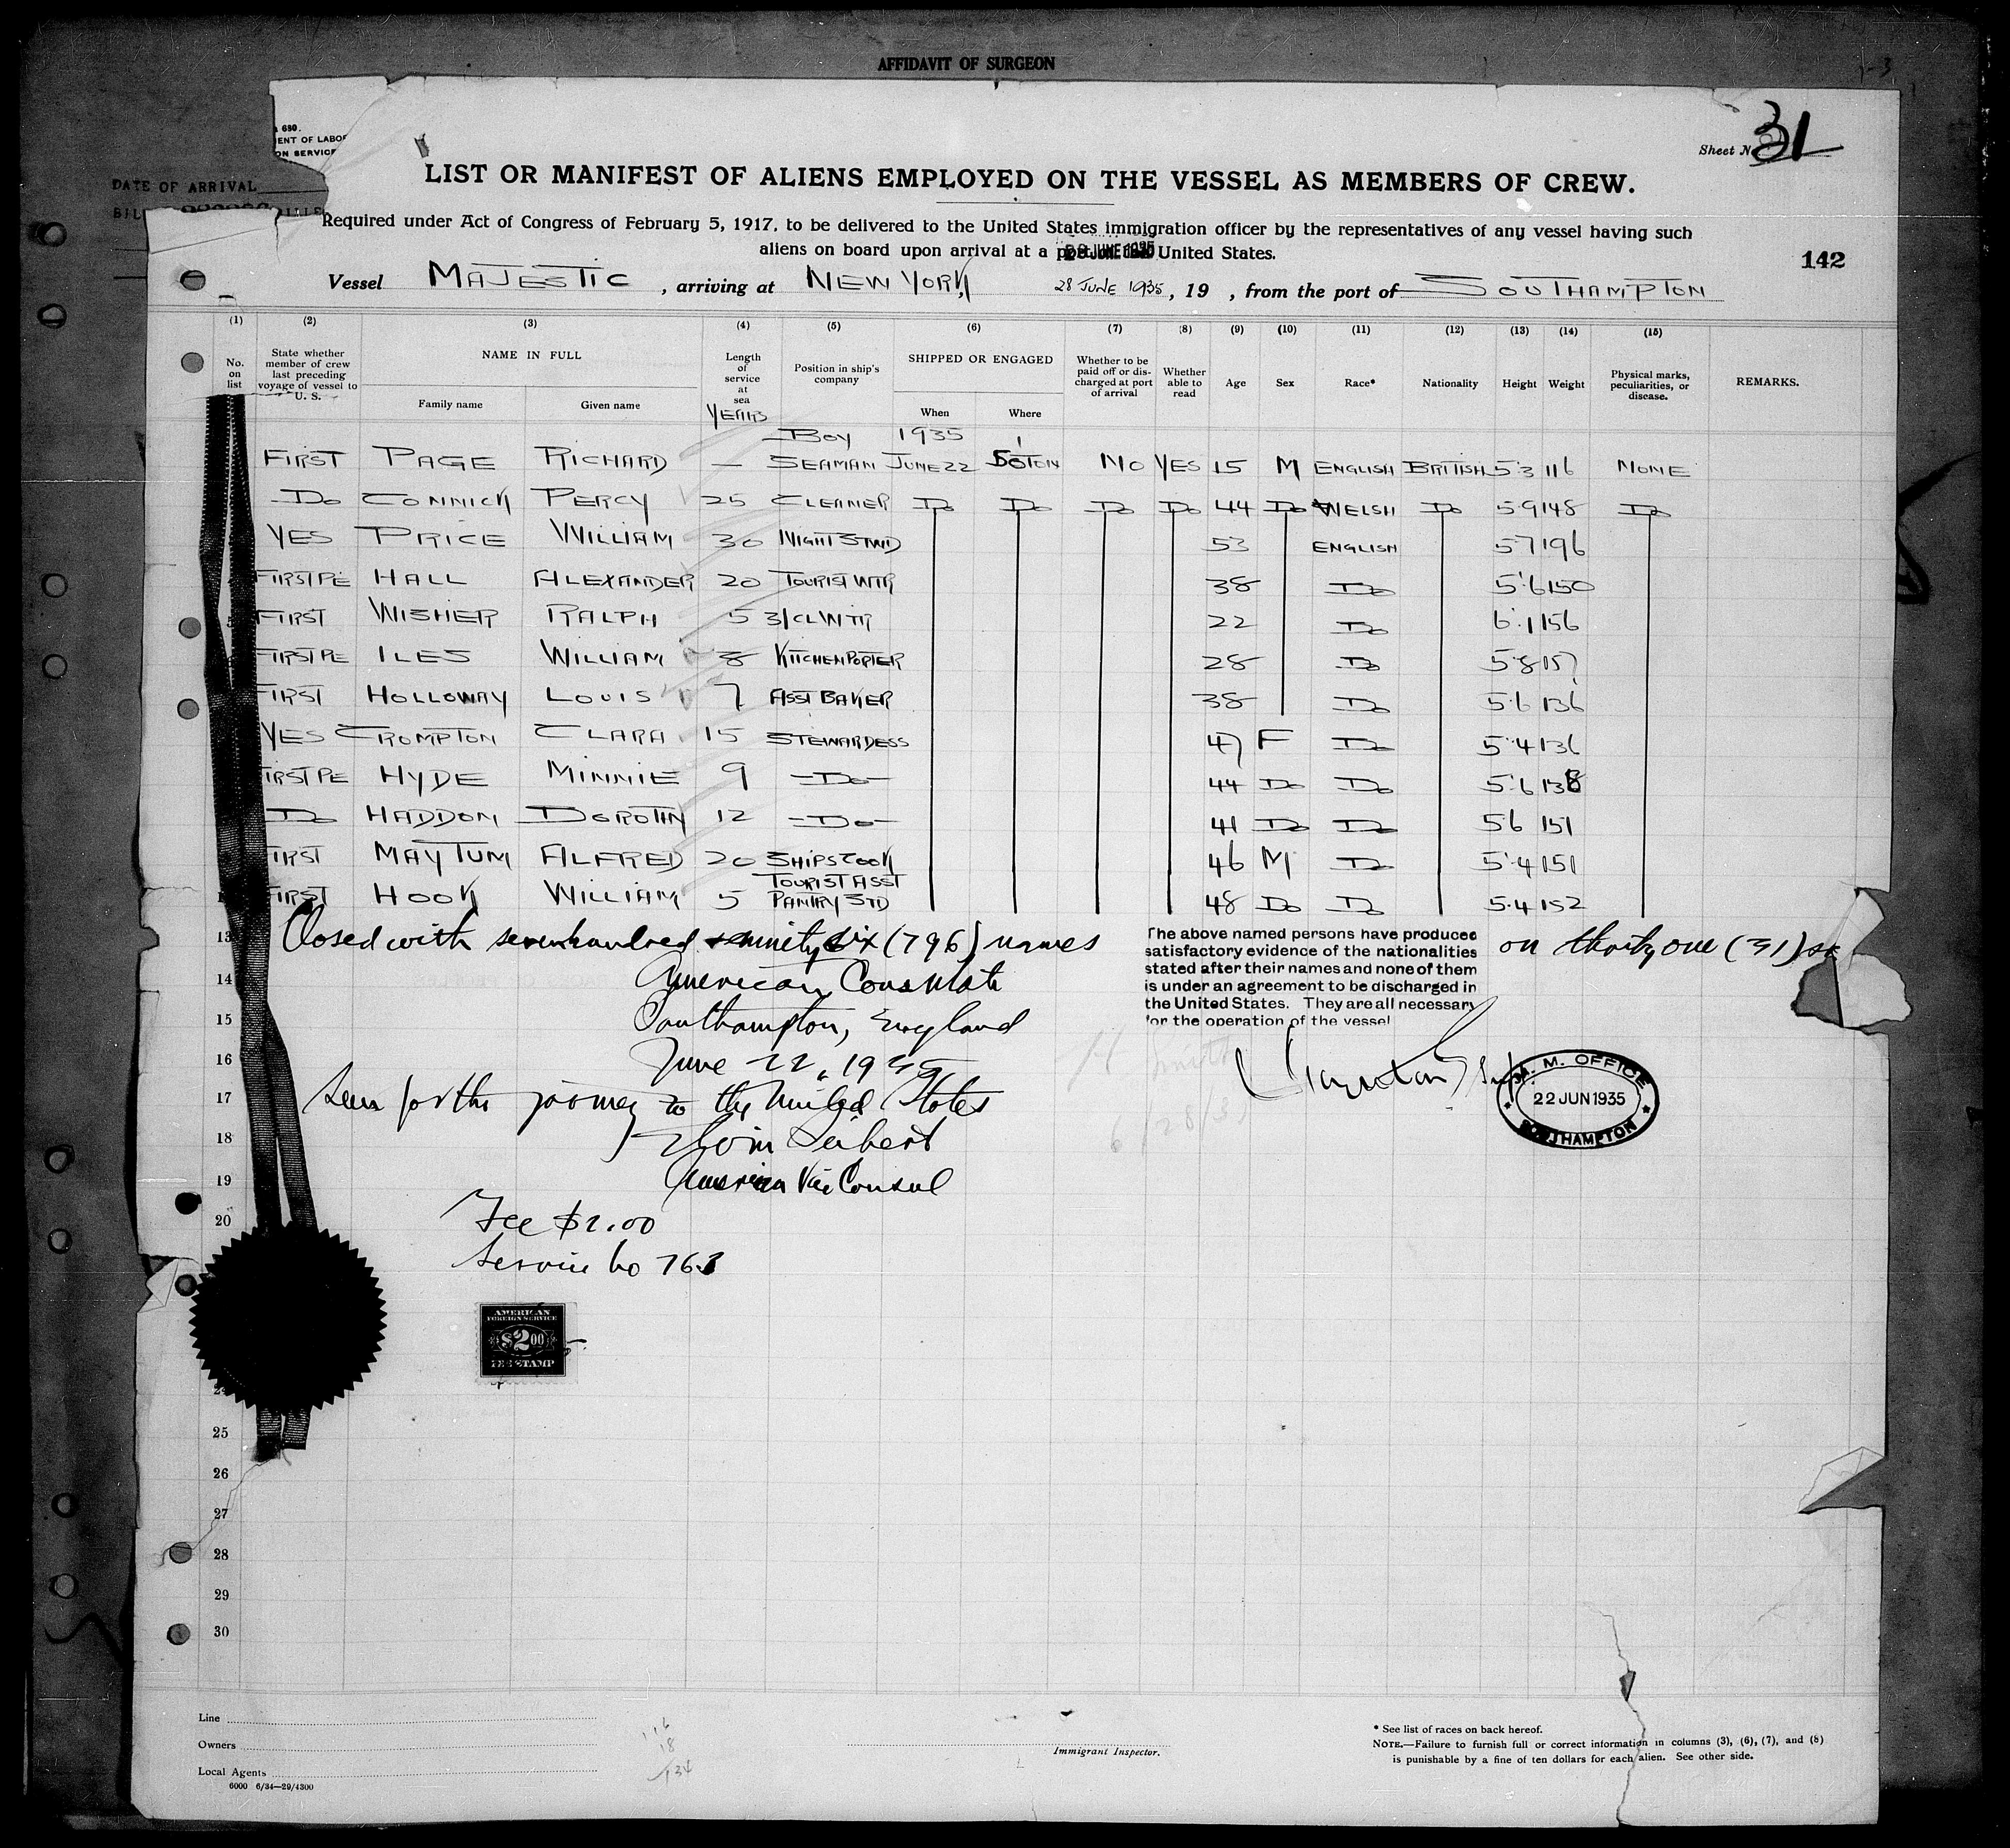 AFFIDAVIT OF SURGEON
680.
ENT OF LABOR
ON SERVICE
DATE OF ARRIVAL
Sheet No 31
LIST OR MANIFEST OF ALIENS EMPLOYED ON THE VESSEL AS MEMBERS OF CREW.
Required under Act of Congress of February 5, 1917, to be delivered to the United States immigration officer by the representatives of any vessel having such
aliens on board upon arrival at a port of the United States.
28 JUNE 1935
142
Vessel MAJESTIC , arriving at NEW YORK, 28 JUNE 1935, 19 , from the port of SOUTHAMPTON
(1) (2) (3) (4) (5) (6) (7) (8) (9) (10) (11) (12) (13) (14) (15)
No. on list State whether member of crew last preceding voyage of vessel to U. S. NAME IN FULL Family name Given name Length of service at sea YEARS Position in ship's company SHIPPED OR ENGAGED When Where Whether to be paid off or discharged at port of arrival Whether able to read Age Sex Race* Nationality Height Weight Physical marks, peculiarities, or disease. REMARKS.
FIRST PAGE RICHARD — BOY SEAMAN 1935 JUNE 22 SOTON NO YES 15 M ENGLISH BRITISH 5·3 116 NONE
DO CONNICK PERCY 25 CLEANER DO DO DO DO 44 DO WELSH DO 5 9 148 DO
YES PRICE WILLIAM 30 NIGHT STWD 53 ENGLISH 5 7 196
FIRST PE HALL ALEXANDER 20 TOURIST WTR 38 DO 5·6 150
FIRST WISHER RALPH 5 3/CL WTR 22 DO 6·1 156
FIRST PE ILES WILLIAM 8 KITCHEN PORTER 28 DO 5·8 157
FIRST HOLLOWAY LOUIS 7 ASST BAKER 38 DO 5·6 136
YES CROMPTON CLARA 15 STEWARDESS 47 F DO 5·4 136
FIRST PE HYDE MINNIE 9 —DO— 44 DO DO 5·6 138
DO HADDON DOROTHY 12 —DO— 41 DO DO 5·6 151
FIRST MAYTUM ALFRED 20 SHIPS COOK 46 M DO 5·4 151
FIRST HOOK WILLIAM 5 TOURIST ASST PANTRY STD 48 DO DO 5·4 152
13 Closed with seven hundred & ninety six (796) names on thirty one (31)
The above named persons have produced
satisfactory evidence of the nationalities
stated after their names and none of them
is under an agreement to be discharged in
the United States. They are all necessary
for the operation of the vessel
14 American Consulate
15 Southampton, England
16 June 22, 1935
17 Seen for the journey to the United States
18
19 American Vice Consul
20 Fee $2.00
Service No 763
M. M. OFFICE
22 JUN 1935
SOUTHAMPTON
AMERICAN
FOREIGN SERVICE
$2.00
FEE STAMP
24
25
26
27
28
29
30
Line
Owners
Local Agents
6000 6/34—29/4300
116
18
134
Immigrant Inspector.
* See list of races on back hereof.
NOTE.—Failure to furnish full or correct information in columns (3), (6), (7), and (8)
is punishable by a fine of ten dollars for each alien. See other side.